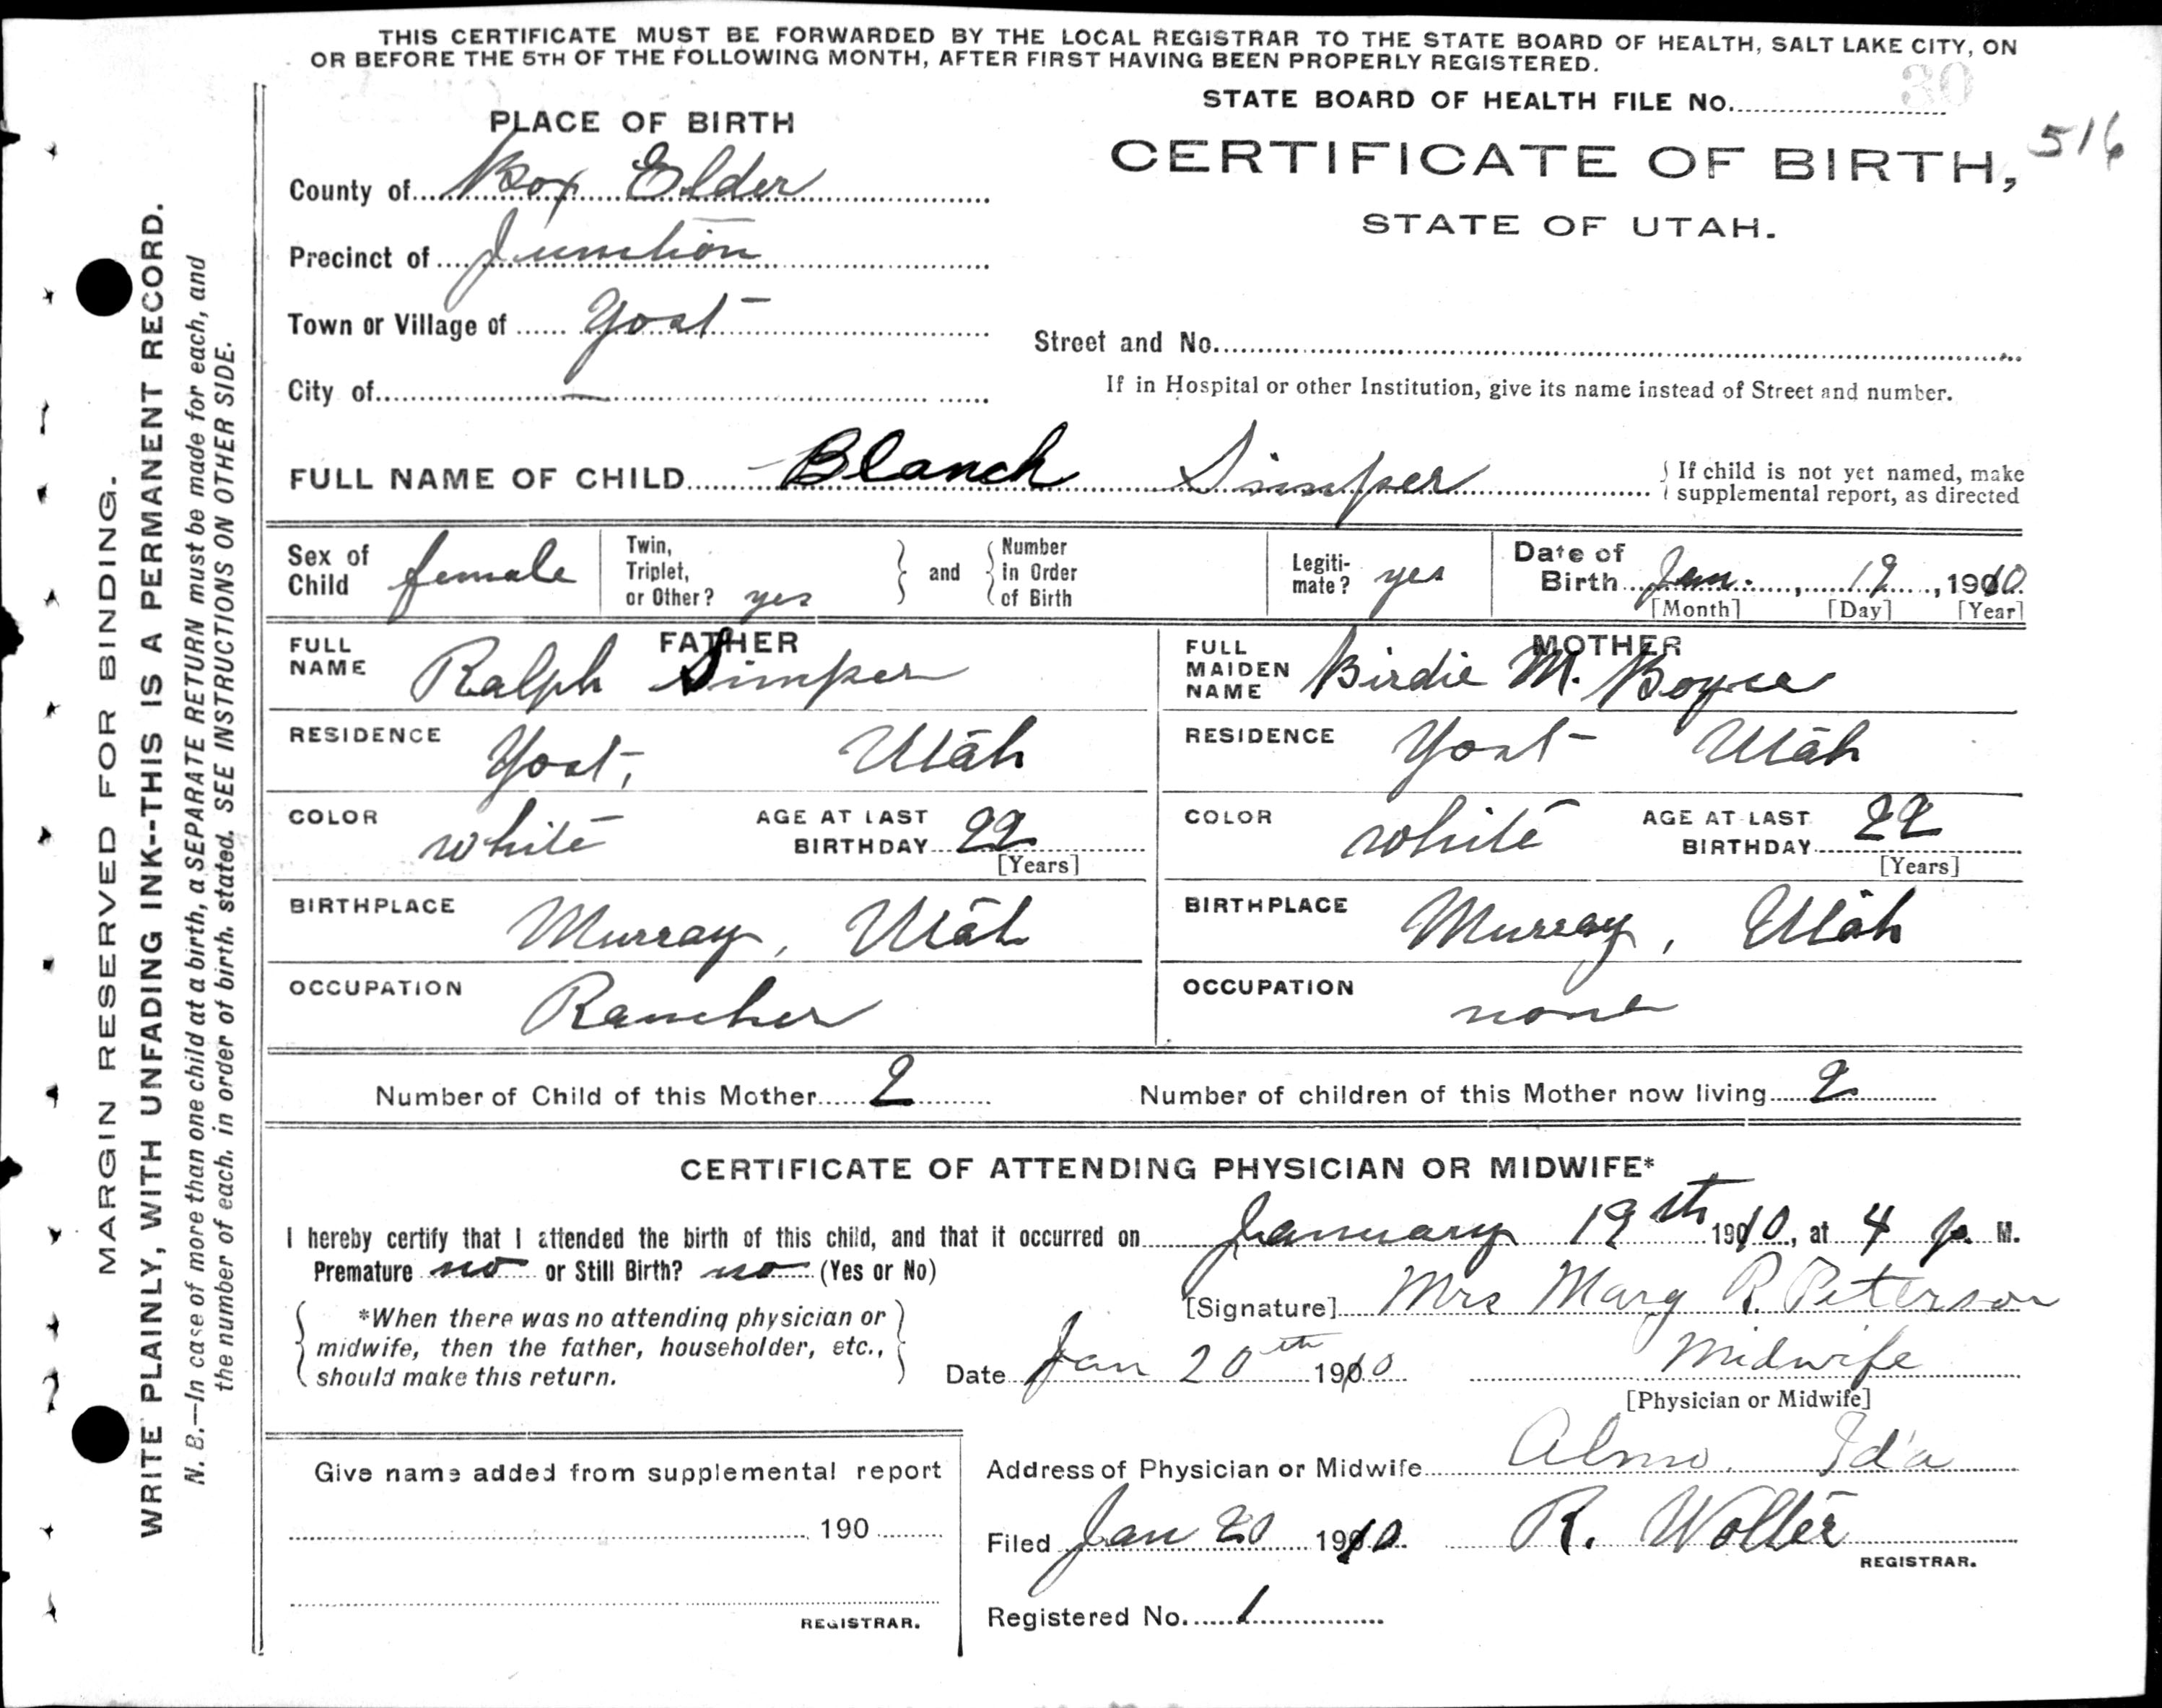 THIS CERTIFICATE MUST BE FORWARDED BY THE LOCAL REGISTRAR TO THE STATE BOARD OF HEALTH, SALT LAKE CITY, ON
OR BEFORE THE 5TH OF THE FOLLOWING MONTH, AFTER FIRST HAVING BEEN PROPERLY REGISTERED.
STATE BOARD OF HEALTH FILE No. 30
516
PLACE OF BIRTH
CERTIFICATE OF BIRTH,
STATE OF UTAH.
County of Box Elder
Precinct of Junction
Town or Village of Yost
Street and No.
City of —
If in Hospital or other Institution, give its name instead of Street and number.
FULL NAME OF CHILD Blanch Simper
If child is not yet named, make
supplemental report, as directed
Sex of Child female
Twin, Triplet, or Other? yes
and
Number in Order of Birth
Legiti-mate? yes
Date of Birth Jan. 19, 1910
[Month] [Day] [Year]
FATHER
FULL NAME Ralph Simper
MOTHER
FULL MAIDEN NAME Birdie M. Boyce
RESIDENCE Yost, Utah
RESIDENCE Yost Utah
COLOR white
AGE AT LAST BIRTHDAY 22
[Years]
COLOR white
AGE AT LAST BIRTHDAY 22
[Years]
BIRTHPLACE Murray, Utah
BIRTHPLACE Murray, Utah
OCCUPATION Rancher
OCCUPATION none
Number of Child of this Mother 2
Number of children of this Mother now living 2
CERTIFICATE OF ATTENDING PHYSICIAN OR MIDWIFE*
I hereby certify that I attended the birth of this child, and that it occurred on January 19th 1910, at 4 p. M.
Premature no or Still Birth? no (Yes or No)
[Signature] Mrs Mary R. Peterson
*When there was no attending physician or
midwife, then the father, householder, etc.,
should make this return.
Date Jan 20th 1910
Midwife
[Physician or Midwife]
Give name added from supplemental report
190
REGISTRAR.
Address of Physician or Midwife Almo. Ida
Filed Jan 20 1910 R. Wolter
REGISTRAR.
Registered No. 1
MARGIN RESERVED FOR BINDING.
WRITE PLAINLY, WITH UNFADING INK--THIS IS A PERMANENT RECORD.
N. B.—In case of more than one child at a birth, a SEPARATE RETURN must be made for each, and
the number of each, in order of birth, stated. SEE INSTRUCTIONS ON OTHER SIDE.